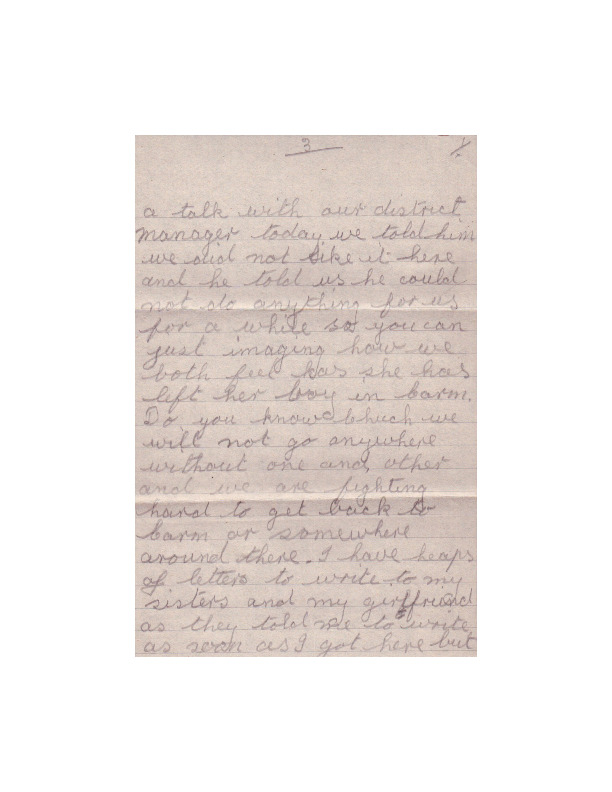 3
a talk with our district
manager today we told him
we did not like it here
and he told us he could
not do anything for us
for a while so you can
just imaging how we
both feel has she has
left her boy in barm.
Do you know chuch we
will not go anywhere
without one and other
and we are fighting
hard to get back to
barm or somewhere
around there. I have heaps
of letters to write to my
sisters and my girlfriend
as they told me to write
as soon as I got here but